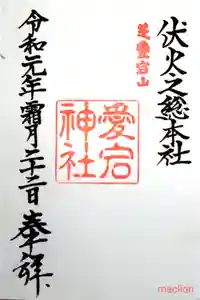 伏火之総本社
芝愛宕山
愛宕
神社
令和元年霜月二十三日奉拝
maclion